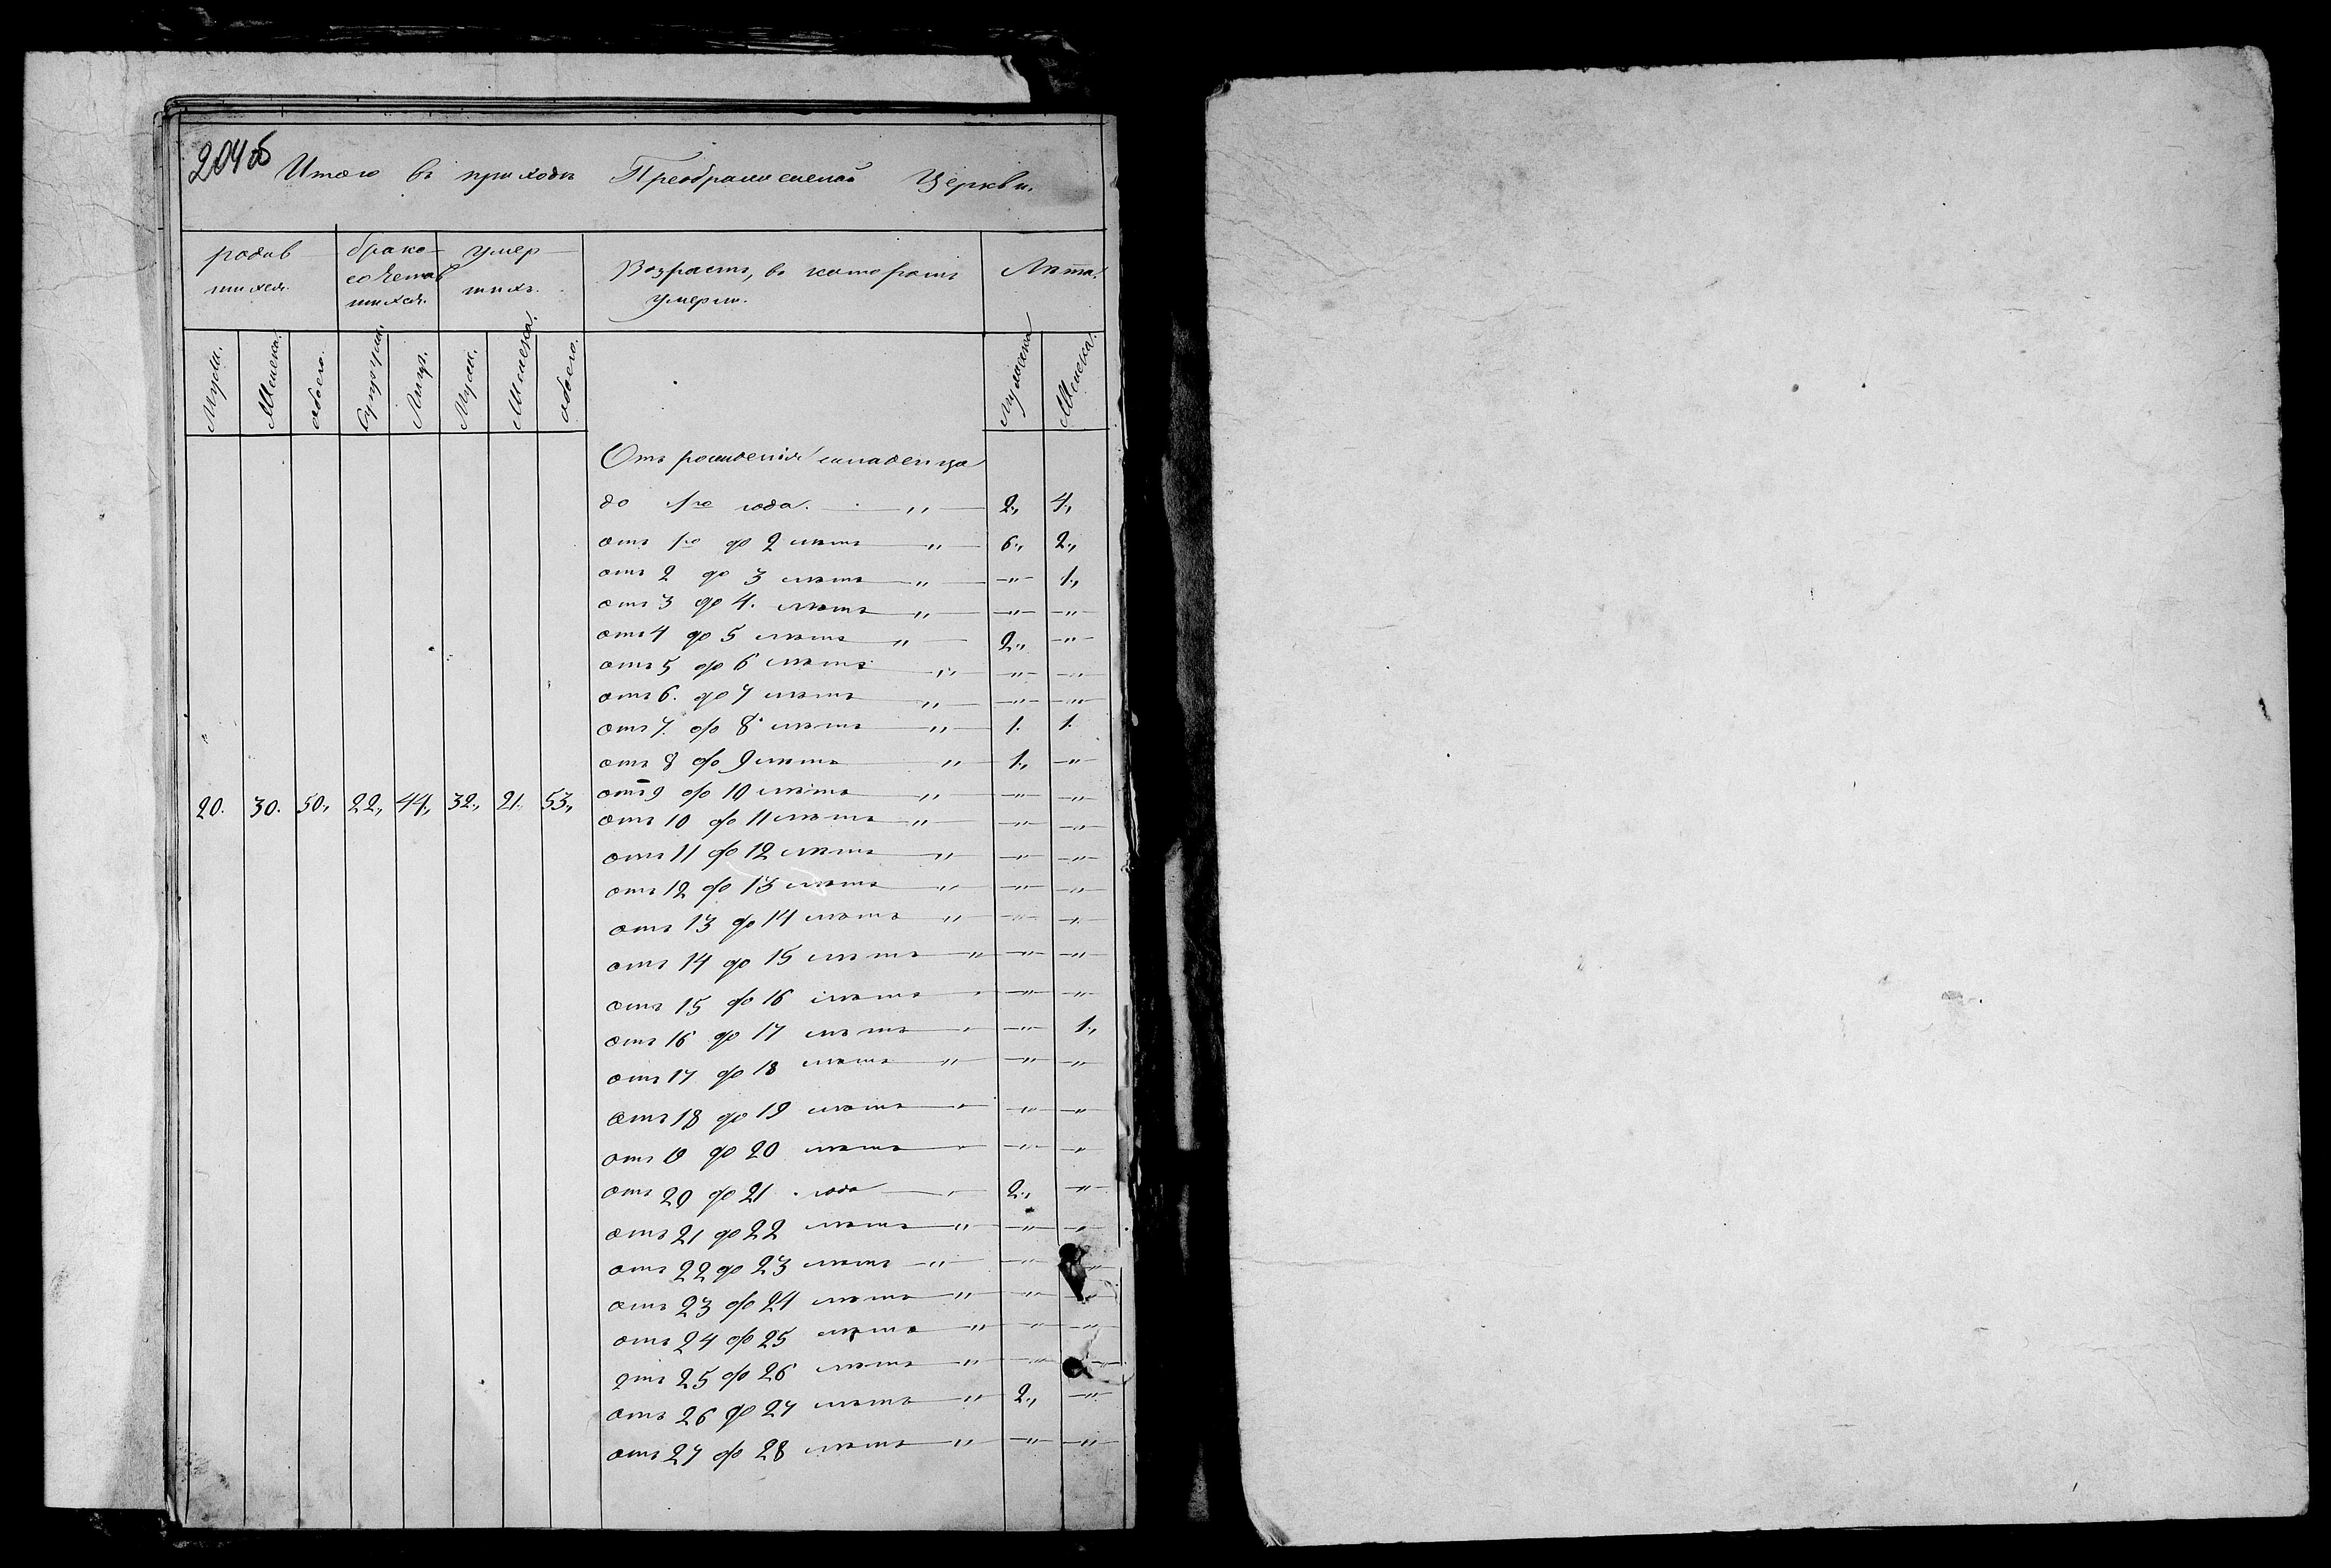 204 об
Итого въ приходѣ Преображенской Церкви.
родив
шихся.
брако-
сочетав
шихся.
умер
шихъ.
Возрастъ, въ которомъ
умерли.
Лѣта.
Муж. Женска. обоего. Супруж. Лицъ. Муж. Женска. обоего. Мужска Женска.
Отъ рожденія младенца
до 1го года. " 2., 4.,
отъ 1го до 2 лѣтъ " 6., 2.,
отъ 2 до 3 лѣтъ " " 1.,
отъ 3 до 4. лѣтъ " " "
отъ 4 до 5 лѣтъ " 2., "
отъ 5 до 6 лѣтъ " " "
отъ 6. до 7 лѣтъ " " "
отъ 7. до 8 лѣтъ " 1. 1.
отъ 8 до 9 лѣтъ " 1., "
20. 30. 50., 22., 44., 32., 21. 53., отъ 9 до 10 лѣтъ " " "
отъ 10 до 11 лѣтъ " " "
отъ 11 до 12 лѣтъ " " "
отъ 12 до 13 лѣтъ " " "
отъ 13 до 14 лѣтъ " " "
отъ 14 до 15 лѣтъ " " "
отъ 15 до 16 лѣтъ " " "
отъ 16 до 17 лѣтъ " " 1.,
отъ 17 до 18 лѣтъ " " "
отъ 18 до 19 лѣтъ " " "
отъ 19 до 20 лѣтъ " " "
отъ 20 до 21 года " 2., "
отъ 21 до 22 лѣтъ " " "
отъ 22 до 23 лѣтъ " " "
отъ 23 до 24 лѣтъ " " "
отъ 24 до 25 лѣтъ " " "
отъ 25 до 26 лѣтъ " "
отъ 26 до 27 лѣтъ " 2., "
отъ 27 до 28 лѣтъ " " "